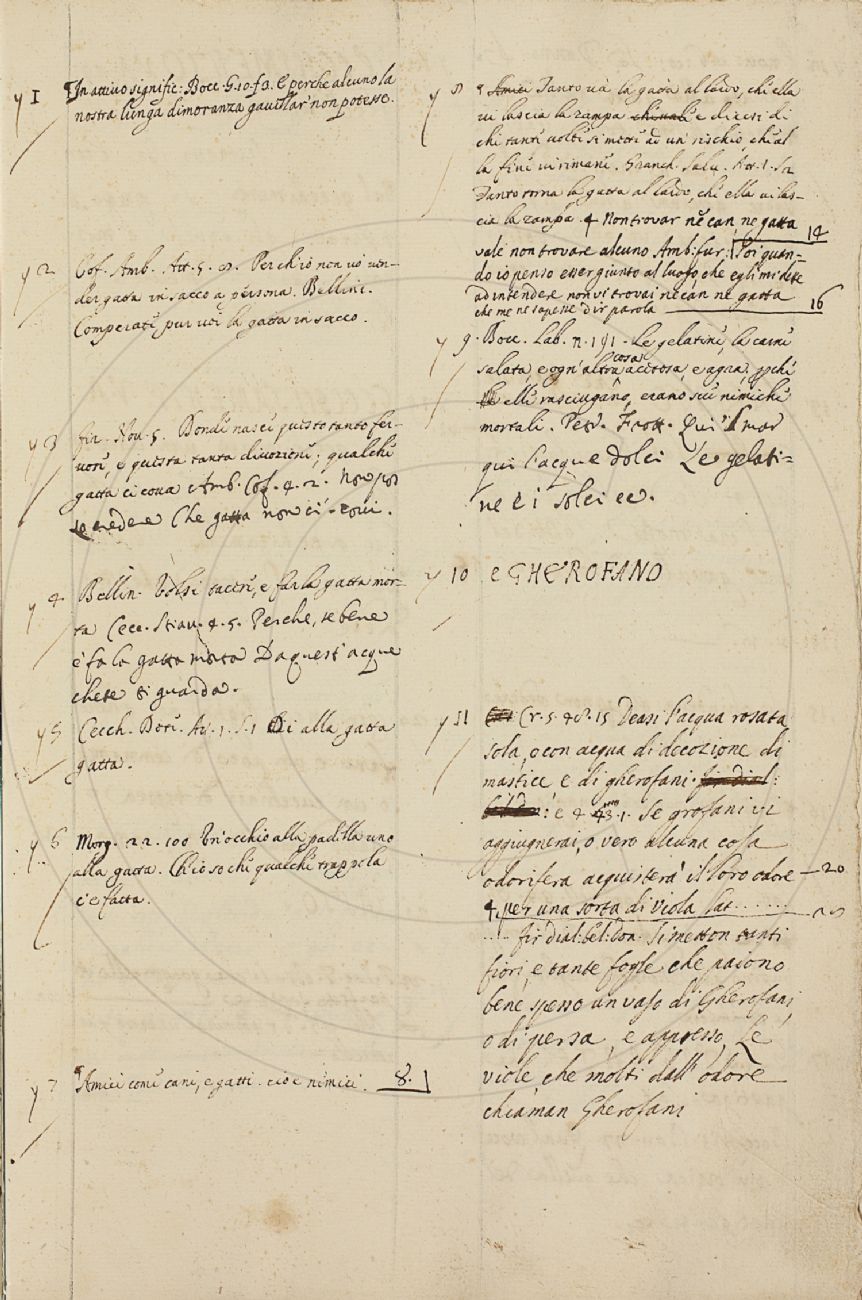 y 1 ¶ In attivo signific: Bocc. G.10. f3. E perche alcuno la
nostra lunga dimoranza gavillar' non potesse.
y 2 Cof. Amb. Att. 5. Perch'io non vo' ven-
der gatta in sacco a persona. Bellini.
Comperati pur voi la gatta in sacco.
y 3 fir. Nov. 5. Dondi nasci questo tanto fer-
vori, e questa tanta divozioni; qualchi
gatta ci cova. Amb. Cof. 4. 2. Non può
credere Che gatta non ci covi.
y 4 Bellin. Volsi taceri, e far la gatta mor-
ta Cecc. Stiav. 4. 5. Perche, se bene
e' fa la gatta morta Da quest' acque
chete ti guarda.
y 5 Cecch. Dot. At. 1. S. 1 Di alla gatta
gatta.
y 6 Morg. 22. 100 Un'occhio alla padella uno
alla gatta. Ch'io so chi qualchi trappola
c'è fatta.
y 7 ¶ Amici comi cani, e gatti. cioè nimici. 8.
y 8 ¶ Amici Tanto va la gatta al lardo, chi ella
vi lascia la zampa e dicesi di
chi tanti volti si metti ad un' rischio, ch'al
la fini vi rimani. Granch. Salv. Att. 1. S. 2
Tanto torna la gatta al lardo, chi ella vi las-
cia la zampa. 4 Non trovar nè can, nè gatta 14
vale non trovare alcuno Amb: fur: Poi quan-
do io penso esser giunto al luogo che egli mi dette
ad intendere non vi trovai nè can nè gatta
che me ne sapesse dir parola 16
y 9. Bocc. Lab. n. 191. Le gelatini, la carni
salata, e ogn' altra cosa acitosa, e agra, perchi
elli rasciugano, erano sui nimichi
mortali. Petr. Frott. Qui'l mar
qui l'acque dolci Le gelati=
ne e i solci ec.
y 10 e GHEROFANO
y 11 Cr. 5. 48. 15 Deasi l'acqua rosata
sola, o con acqua di decozione di
mastice e di gherofani.
e 4 43. 1. Se grofani vi
aggiugnerai, o vero alcuna cosa
odorifera acquisterà il loro odore — 20
4. per una sorta di viola lat. . . . . . .
. . . . fir dial: bel: don. Si metton tanti
fiori, e tante foglie che paiono
bene spesso un vaso di Gherofani,
o di persa, e appresso, Le
viole, che molti dall' odore
chiaman Gherofani